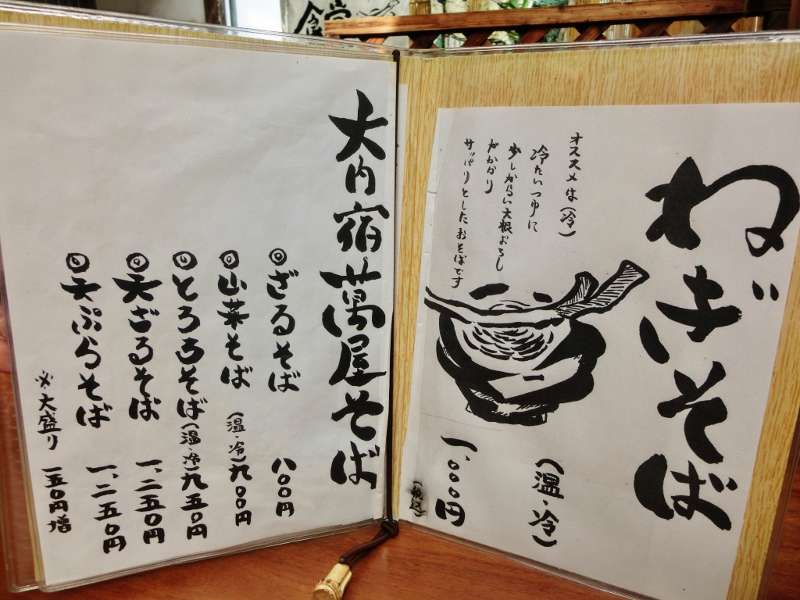 ねぎそば
オススメは(冷)
冷たいつゆに
少しからい大根おろし
がかかり
サッパリとしたおそばです
(温・冷)
一、〇〇〇円
(税込)
大内宿萬屋そば
◎ざるそば 八〇〇円
◎山菜そば(温・冷)九〇〇円
◎とろろそば(温・冷)九五〇円
◎天ざるそば 一、二五〇円
◎天ぷらそば 一、二五〇円
※大盛り 一五〇円増
食堂